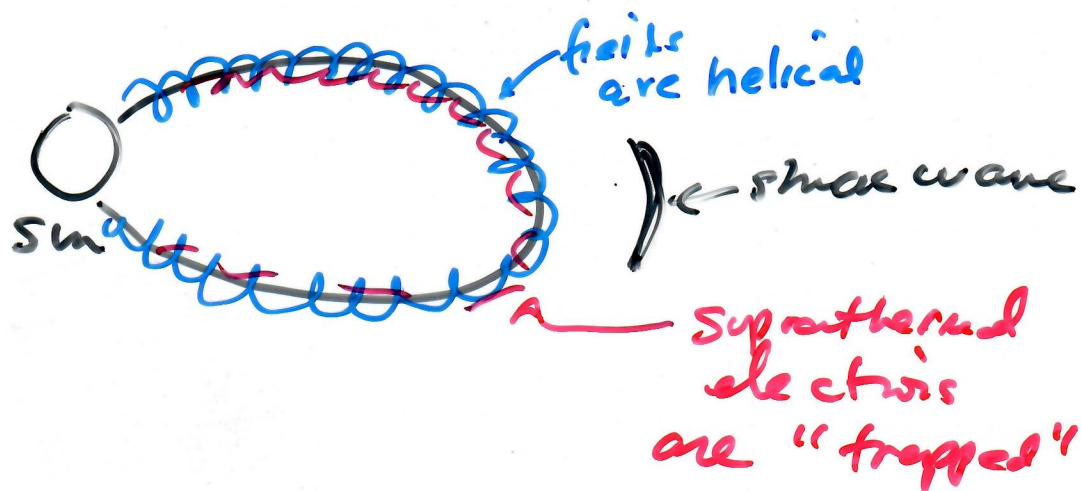 fields
are helical
shock wave
Sun
suprathermal
electrons
are "trapped"